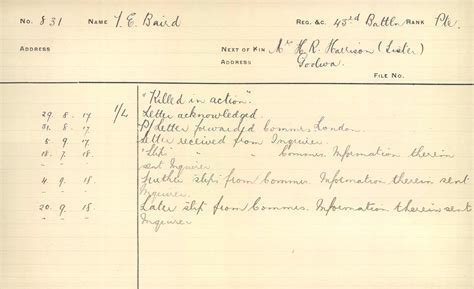 No. 831 NAME T. E. Baird REG. &c. 43rd Battln RANK Pte.
ADDRESS NEXT OF KIN Mrs H. R. Harrison (Sister)
ADDRESS
FILE No.
"Killed in action."
29. 8. 17 1/L Letter acknowledged.
31. 8. 17 P/Letter forwarded Commrs. London.
5. 9. 17 Letter received from Inquirer.
18. 7. 18 " " Commrs. Information therein
sent Inquirer.
4. 9. 18 Further slip from Commrs. Information therein sent
Inquirer.
20. 9. 18. Later slip from Commrs. Information therein sent
Inquirer.